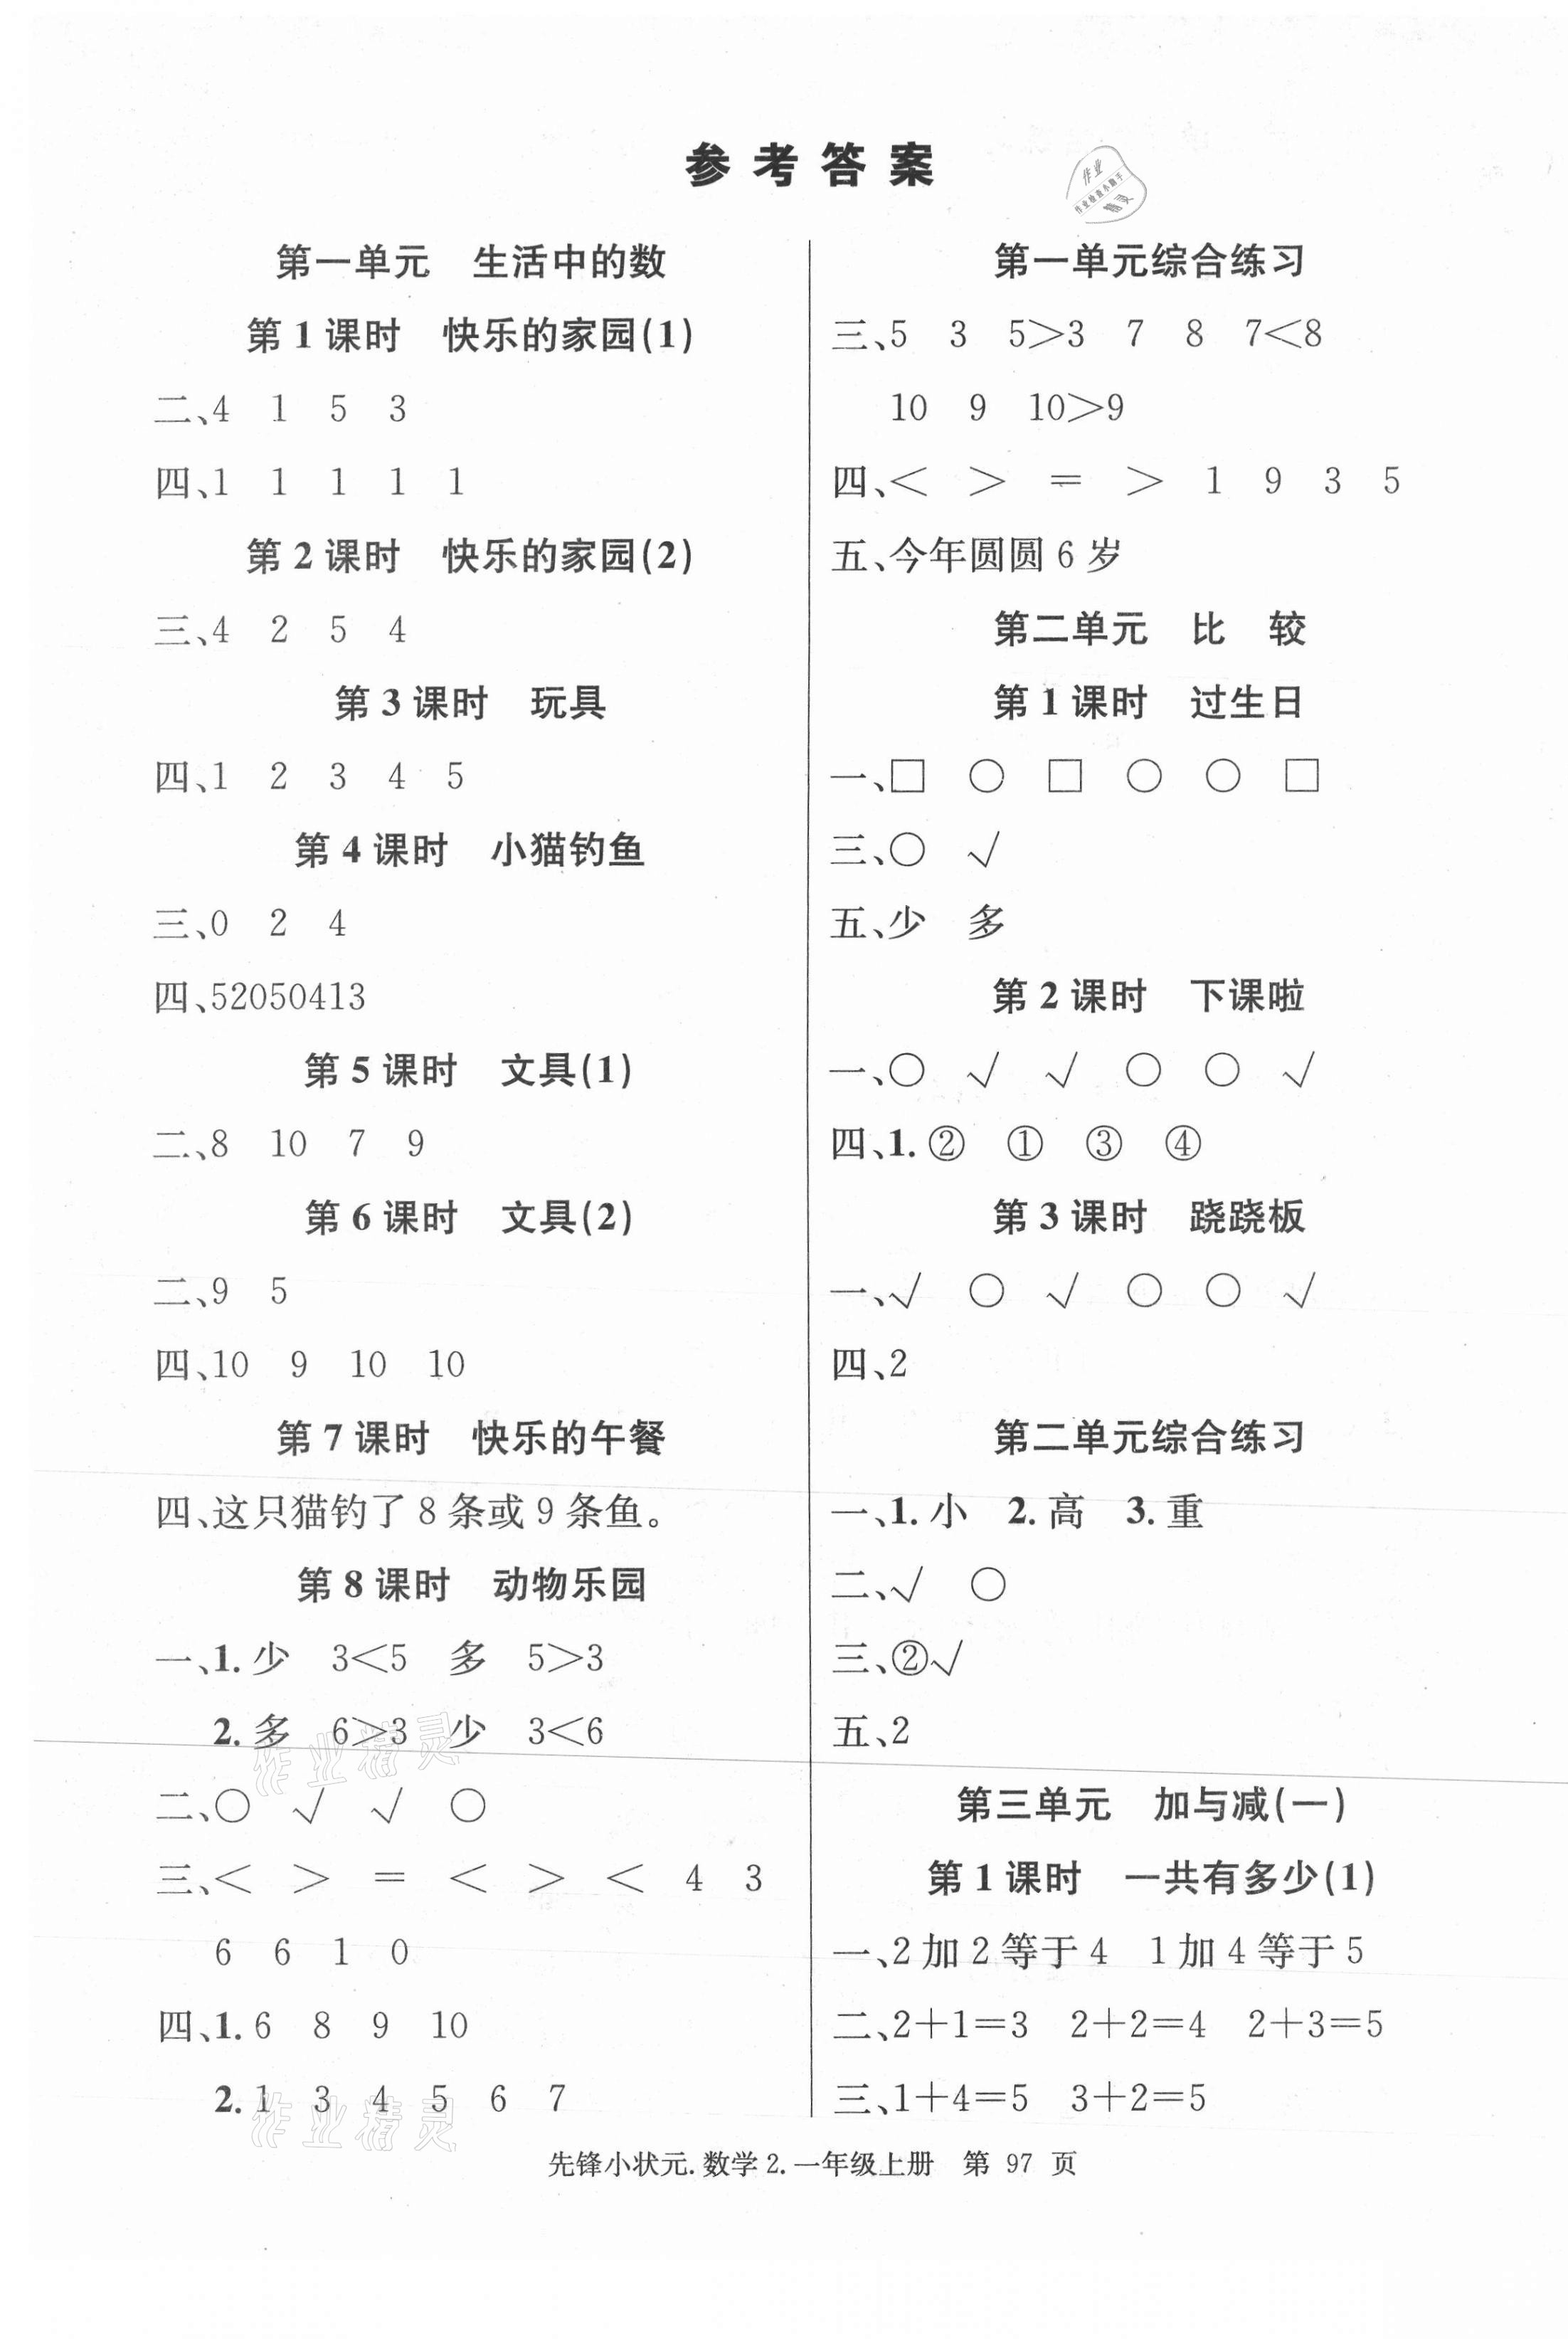 参考答案
作业
作业检查小助手
精灵
第一单元 生活中的数
第1课时 快乐的家园(1)
二、4 1 5 3
四、1 1 1 1 1
第2课时 快乐的家园(2)
三、4 2 5 4
第3课时 玩具
四、1 2 3 4 5
第4课时 小猫钓鱼
三、0 2 4
四、52050413
第5课时 文具(1)
二、8 10 7 9
第6课时 文具(2)
二、9 5
四、10 9 10 10
第7课时 快乐的午餐
四、这只猫钓了8条或9条鱼。
第8课时 动物乐园
一、1.少 3<5 多 5>3
2.多 6>3 少 3<6
作业精灵
二、○ √ √ ○
三、< > = < > < 4 3
6 6 1 0
四、1.6 8 9 10
2.1 3 4 5 6 7
作业精灵
第一单元综合练习
三、5 3 5>3 7 8 7<8
10 9 10>9
四、< > = > 1 9 3 5
五、今年圆圆6岁
第二单元 比 较
第1课时 过生日
一、□ ○ □ ○ ○ □
三、○ √
五、少 多
第2课时 下课啦
一、○ √ √ ○ ○ √
四、1.② ① ③ ④
第3课时 跷跷板
一、√ ○ √ ○ ○ √
四、2
第二单元综合练习
一、1.小 2.高 3.重
二、√ ○
三、②√
五、2
第三单元 加与减(一)
第1课时 一共有多少(1)
一、2加2等于4 1加4等于5
二、2+1=3 2+2=4 2+3=5
三、1+4=5 3+2=5
先锋小状元.数学2.一年级上册 第 97 页